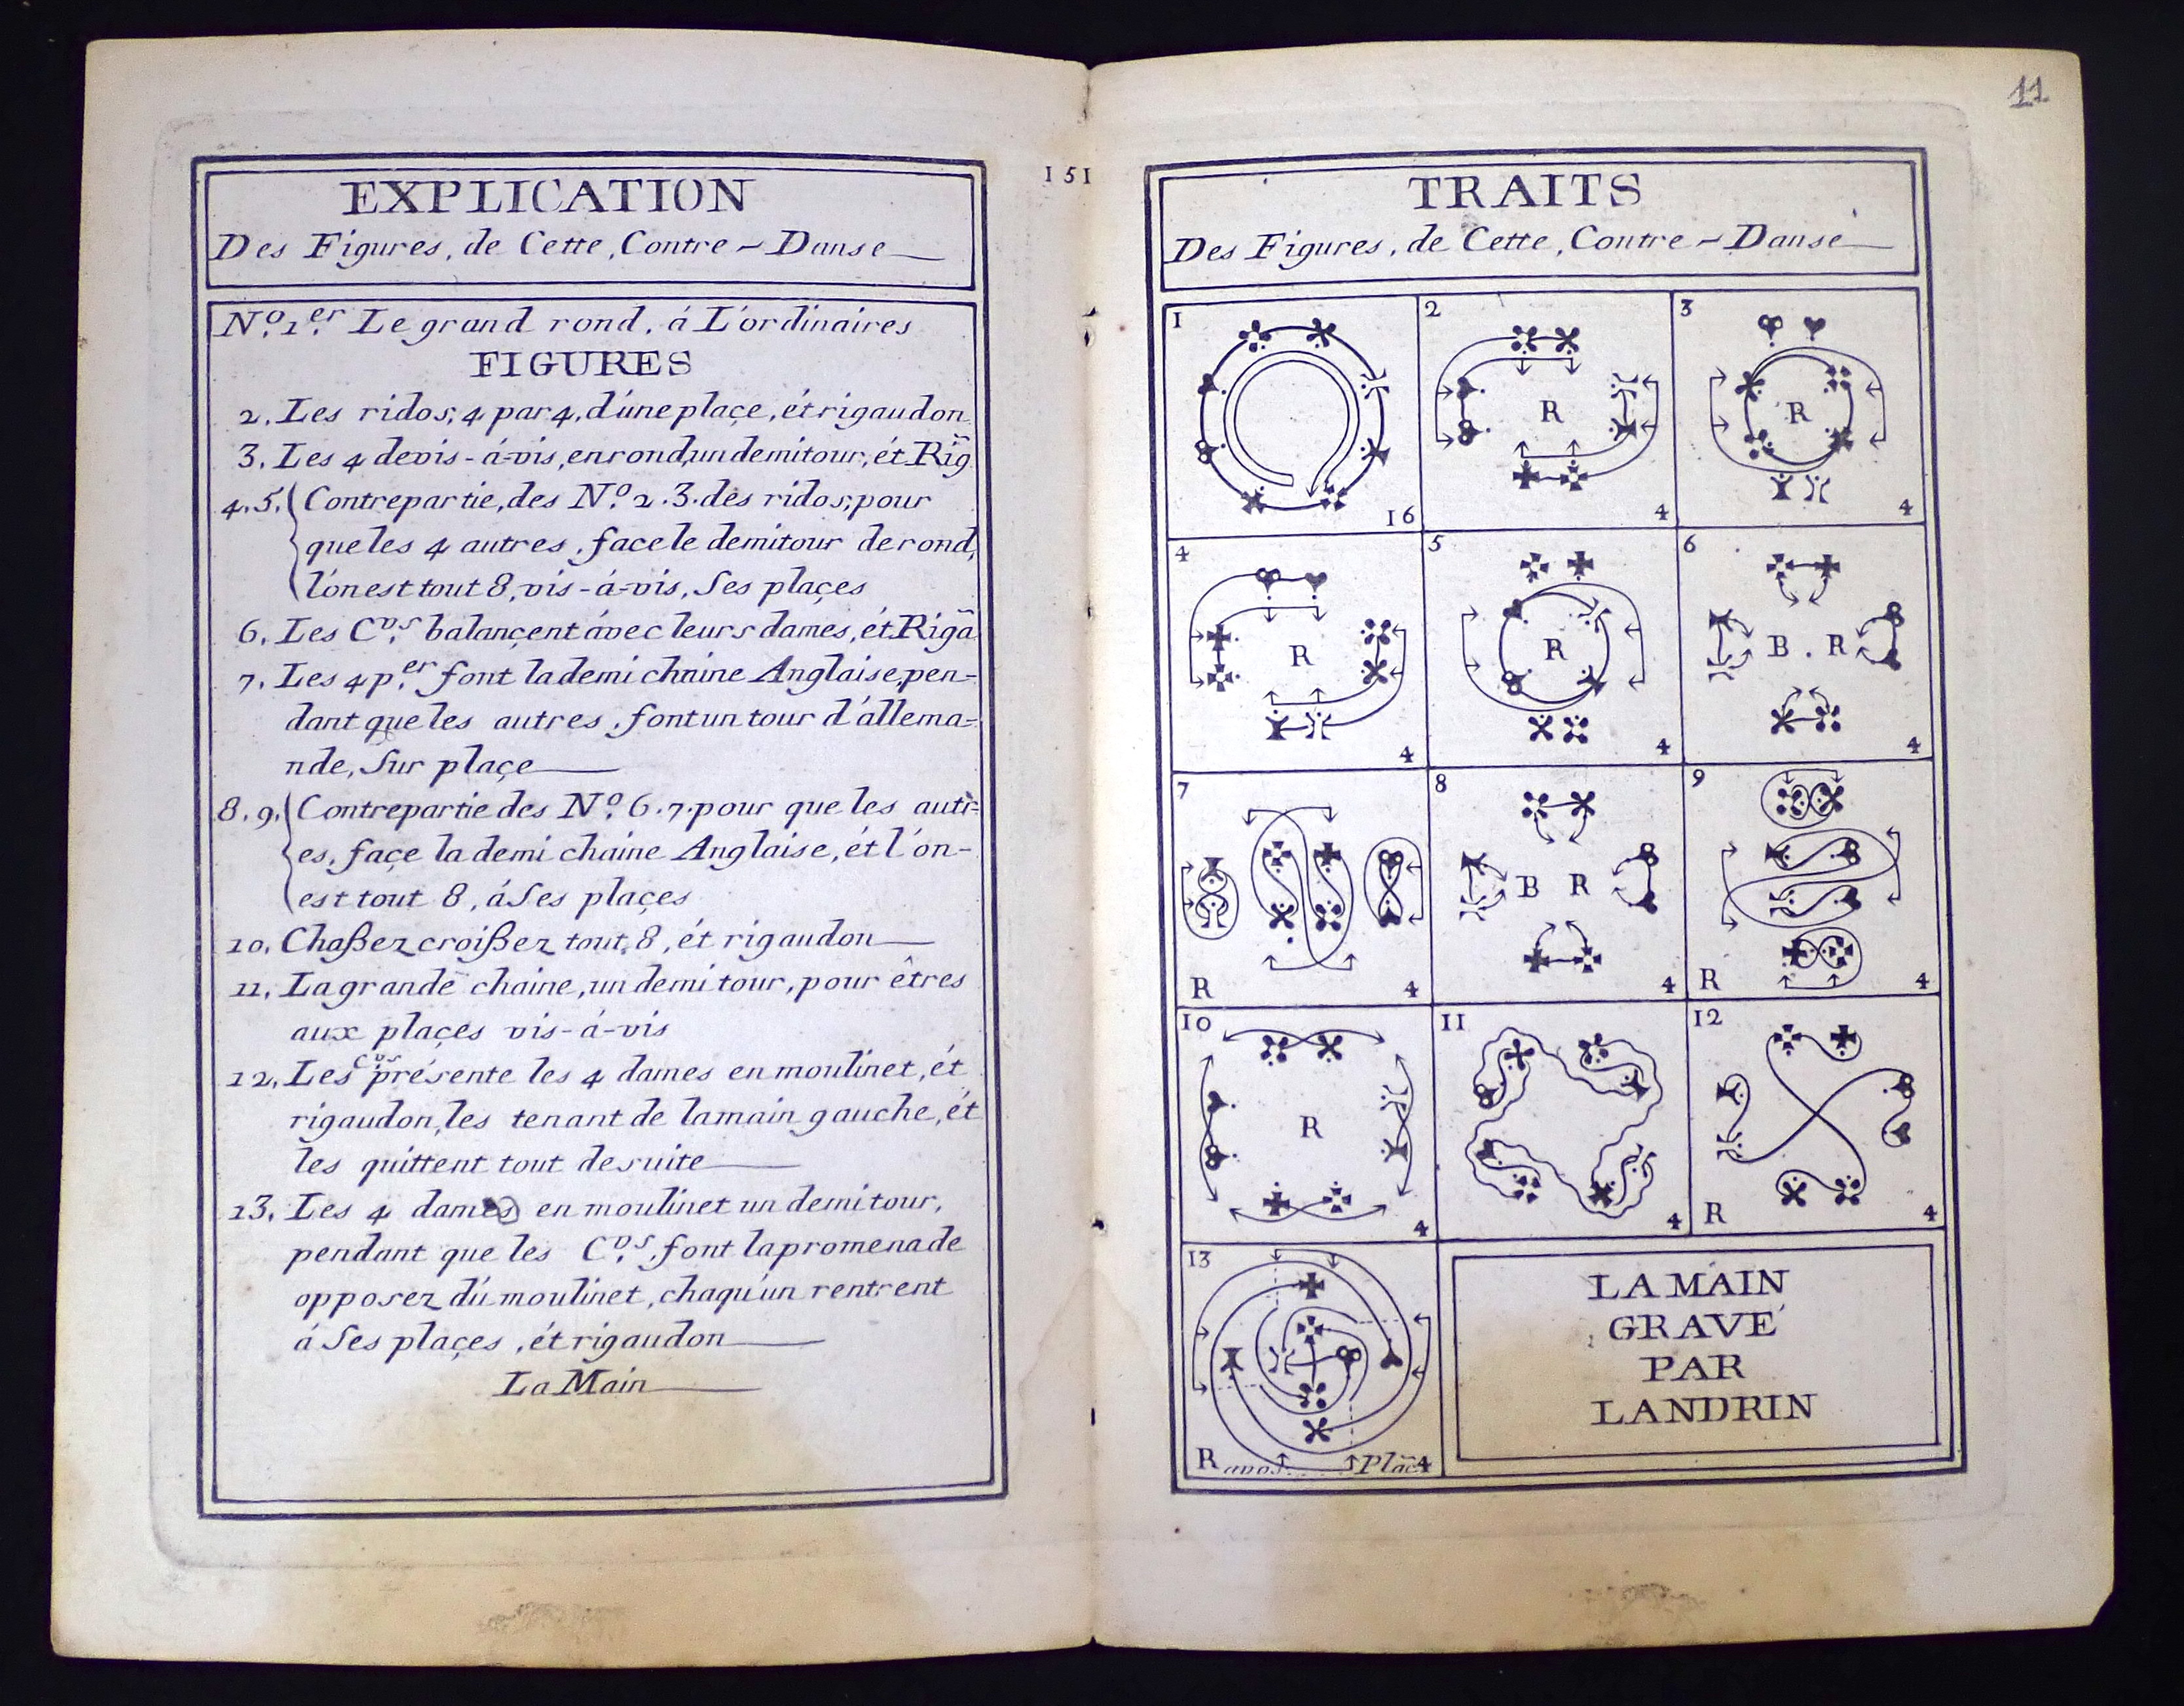 EXPLICATION
Des Figures, de Cette, Contre - Danse
N.º 1.er Le grand rond, á L'ordinaires
FIGURES
2. Les ridos, 4 par 4, d'úne plaçe, ét rigaudon
3. Les 4 devis-á-vis, en rond, un demitour, ét Rig̃
4.5. Contrepartie, des N.º 2.3. des ridos, pour
que les 4 autres, face le demitour de rond,
l'ón est tout 8, vis-á-vis, Ses plaçes
6. Les C.vs balançent ávec leurs dames, ét Rigã
7. Les 4 p.er font la demi chaine Anglaise, pen=
dant que les autres, font un tour d'állema=
nde, Sur plaçe
8.9. Contrepartie des N.º 6.7. pour que les autr=
es, façe la demi chaine Anglaise, ét l'ón-
est tout 8, á Ses plaçes
10. Chaßez croißez tout, 8, ét rigaudon
11. La grande chaine, un demi tour, pour êtres
aux plaçes vis-á-vis
12. Les C.vs présente les 4 dames en moulinet, ét
rigaudon, les tenant de la main gauche, ét
les quittent tout de suite
13. Les 4 dames en moulinet un demi tour,
pendant que les C.vs, font la promenade
opposez dú moulinet, chaqu'ún rentrent
á Ses plaçes, ét rigaudon
La Main
151
11
TRAITS
Des Figures, de Cette, Contre - Danse
1
16
2
R
4
3
R
4
4
R
4
5
R
4
6
B . R
4
7
R
4
8
B R
4
9
R
4
10
R
4
11
4
12
R
4
13
R
avos
Plac̃
4
LA MAIN
GRAVÉ
PAR
LANDRIN